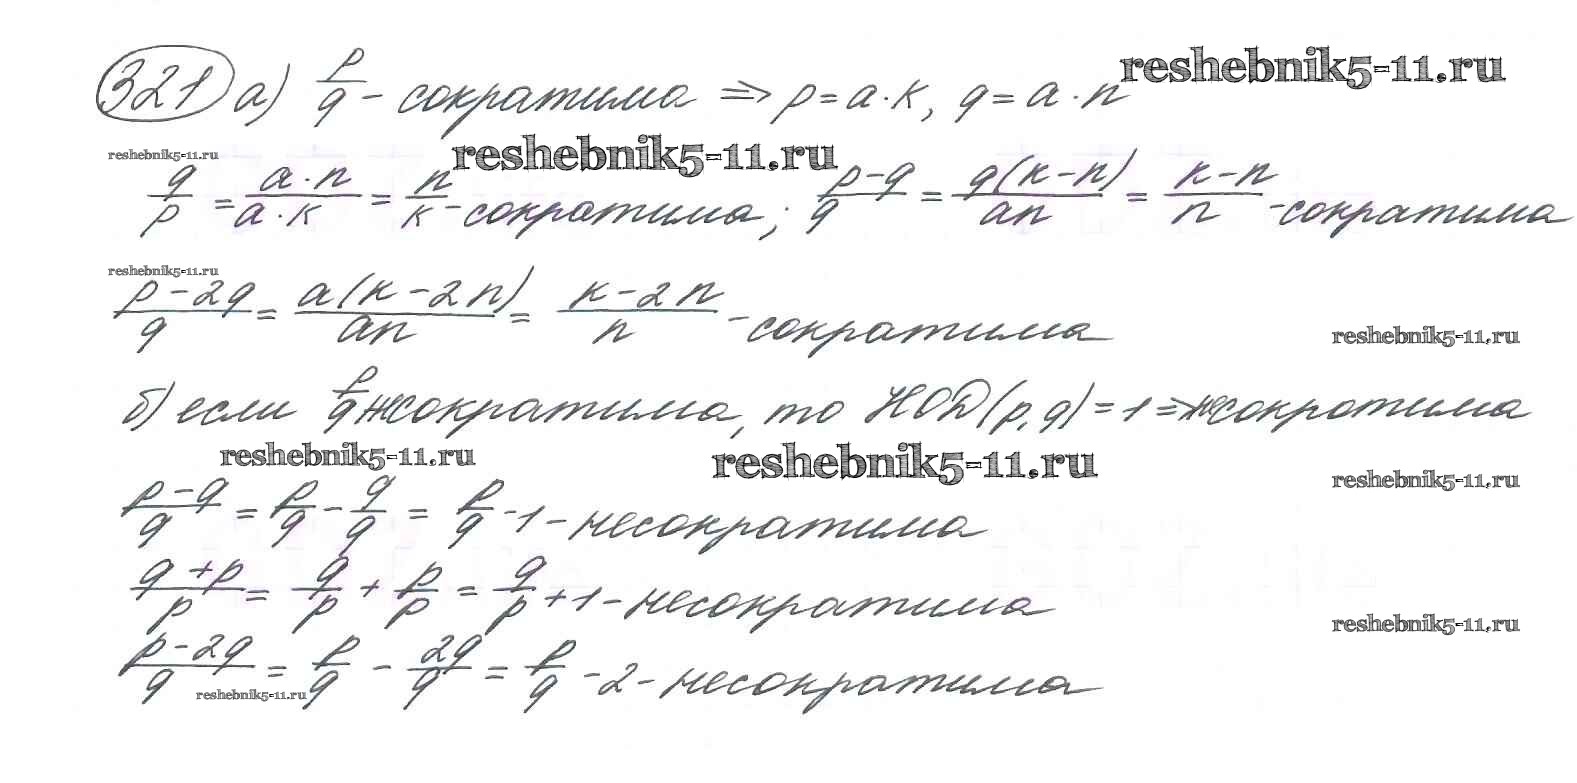 321 а) p/q - сократима => p = a·k, q = a·n
reshebnik5-11.ru
reshebnik5-11.ru
reshebnik5-11.ru
q/p = a·n/a·k = n/k - сократима; p-q/q = q(k-n)/an = k-n/n - сократима
reshebnik5-11.ru
p-2q/q = a(k-2n)/an = k-2n/n - сократима
reshebnik5-11.ru
б) если p/q несократима, то НОД(p,q)=1 => несократима
reshebnik5-11.ru
reshebnik5-11.ru
reshebnik5-11.ru
p-q/q = p/q - q/q = p/q - 1 - несократима
q+p/p = q/p + p/p = q/p + 1 - несократима
reshebnik5-11.ru
p-2q/q = p/q - 2q/q = p/q - 2 - несократима
reshebnik5-11.ru